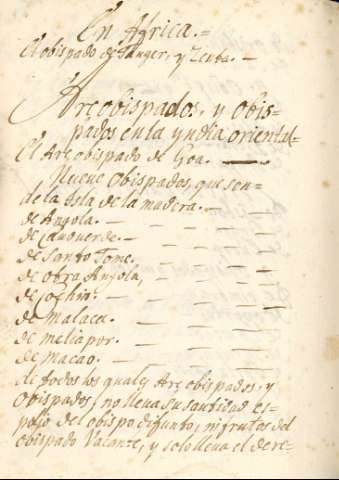 En Africa.-
El obispado de Tanger, y Zeuta.-
Arçobispados, y Obis-
pados en la yndia oriental-
El Arçobispado de Goa.
Nueve Obispados, que son-
de la Isla de la madera.-
de Angola.-
de Cauouerde.-
de Santo Tome.
de Obra Angola,
de Cochin.
de Malaca.
de meliapor.
de Macao.
de todos los quales Arçobispados, y
Obispados, no lleua su santidad es-
polio del obispo difunto, ni frutos del
obispado Vacante, y solo lleua el dere-